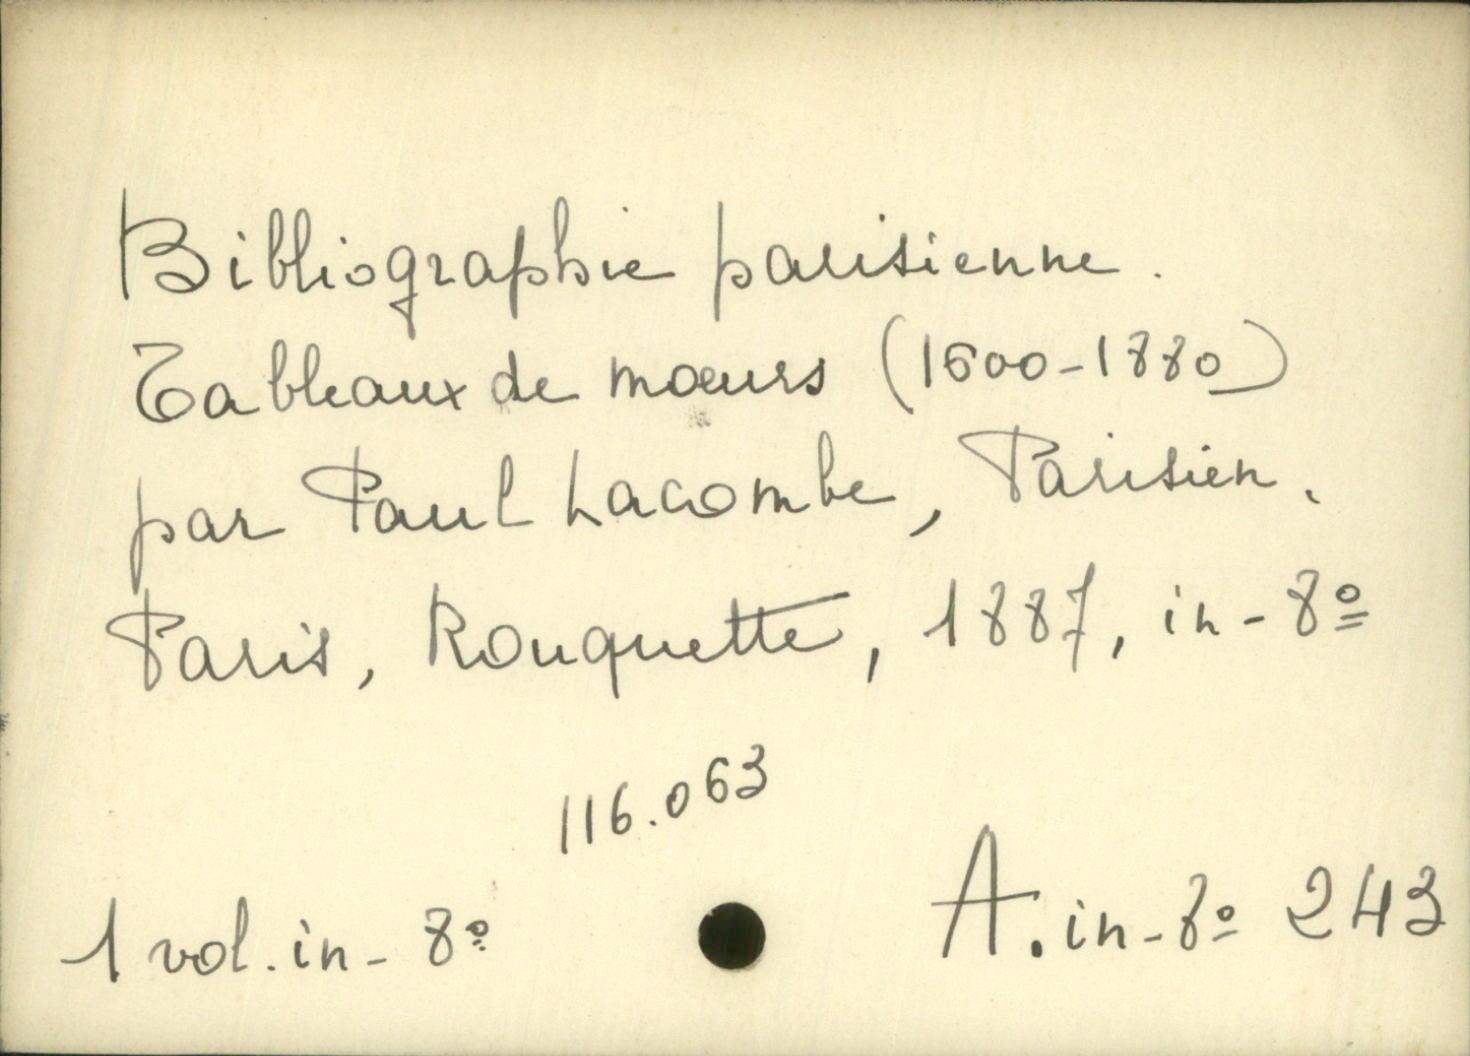 Bibliographie parisienne.
Tableaux de mœurs (1600-1880)
par Paul Lacombe, Parisien.
Paris, Rouquette, 1887, in-8º
116.063
1 vol. in-8º
A. in-8º 243